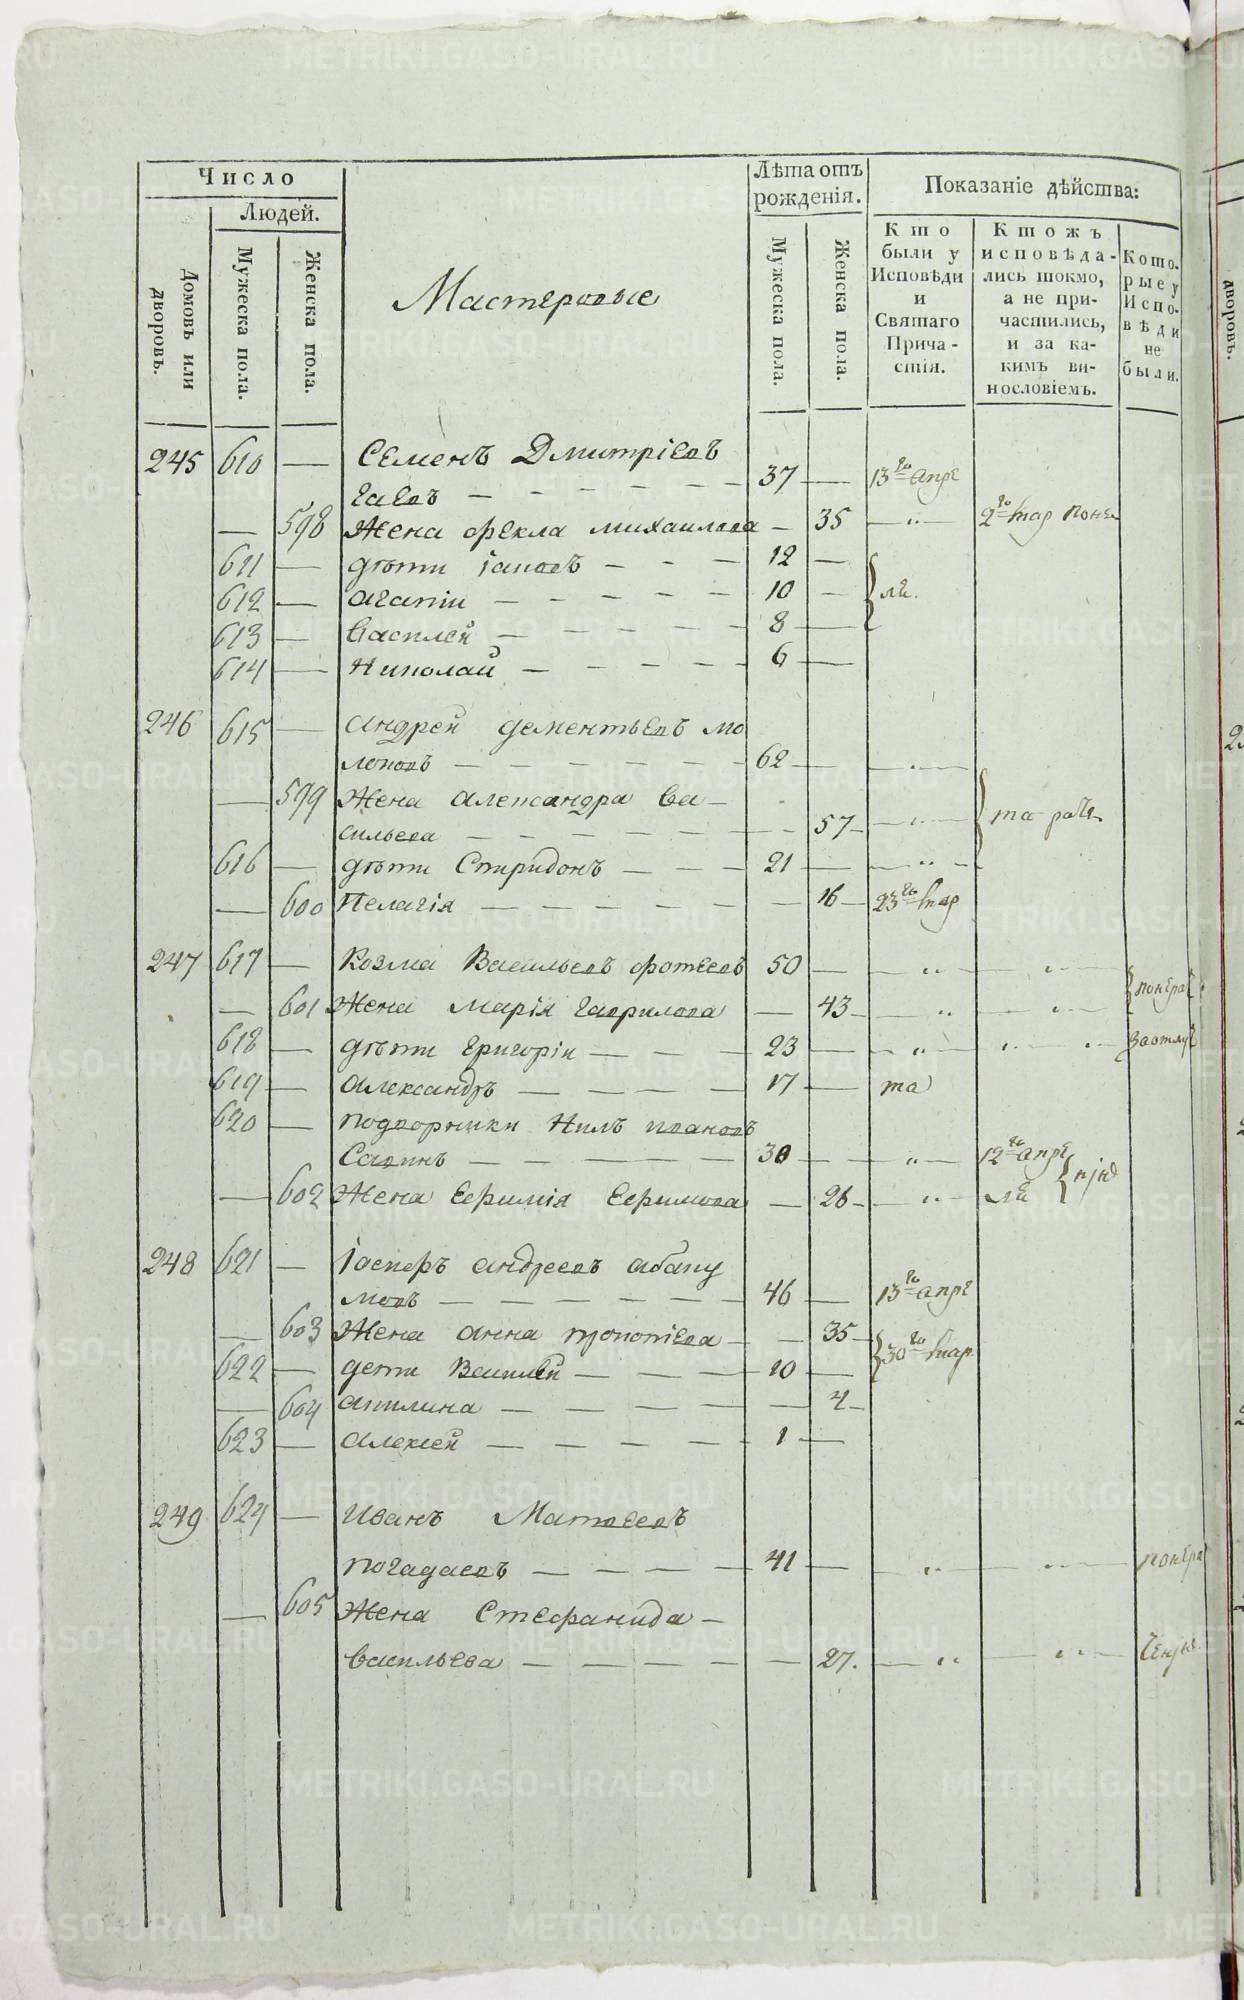 Число
Людей.
Домовъ или дворовъ.
Мужеска пола.
Женска пола.
Мастеровые
Лѣта отъ рожденія.
Мужеска пола.
Женска пола.
Показаніе дѣйства:
Кто были у Исповѣди и Святаго Причастія.
Ктожъ исповѣдались токмо, а не причастились, и за какимъ винословіемъ.
Которые у Исповѣди не были.
245 610 — Семенъ Дмитріевъ
гаевъ — 37 — 13го апре
— 598 Жена Фекла михаилова — 35 — " — 2го мар
611 — дѣти іаковъ — 12 —
612 — агапіи — 10 —
613 — Василей — 8 —
614 — Николай — 6 —
246 615 — андрей дементьевъ мо
локовъ — 62 — " —
— 599 Жена александра Ва
сильева — 57 — " —
616 — дѣти Спиридонъ — 21 — " —
— 600 Пелагія — 16 — 23го мар
247 617 — Козма Васильевъ фотеевъ 50 — " — "
— 601 Жена Марія гаврилова — 43 — " — "
618 — дѣти григоріи — 23 — " — "
619 — александръ — 17 — та
620 — подворники Нилъ ивановъ
Савинъ — 30 — " — 12го апре
— 602 Жена Еѳимія Еѳимова — 26 — " —
248 621 — іосифъ андреевъ абаку
мовъ — 46 — 13го апре
— 603 Жена анна прокопіева — 35 — 30го мар
622 — дети Василей — 10 —
— 604 акилина — 4 —
623 — алексей — 1 —
249 624 — Иванъ Матвеевъ
погадаевъ — 41 — " — "
— 605 Жена Стефанида —
васильева — 27. — " — "
METRIKI.GASO-URAL.RU